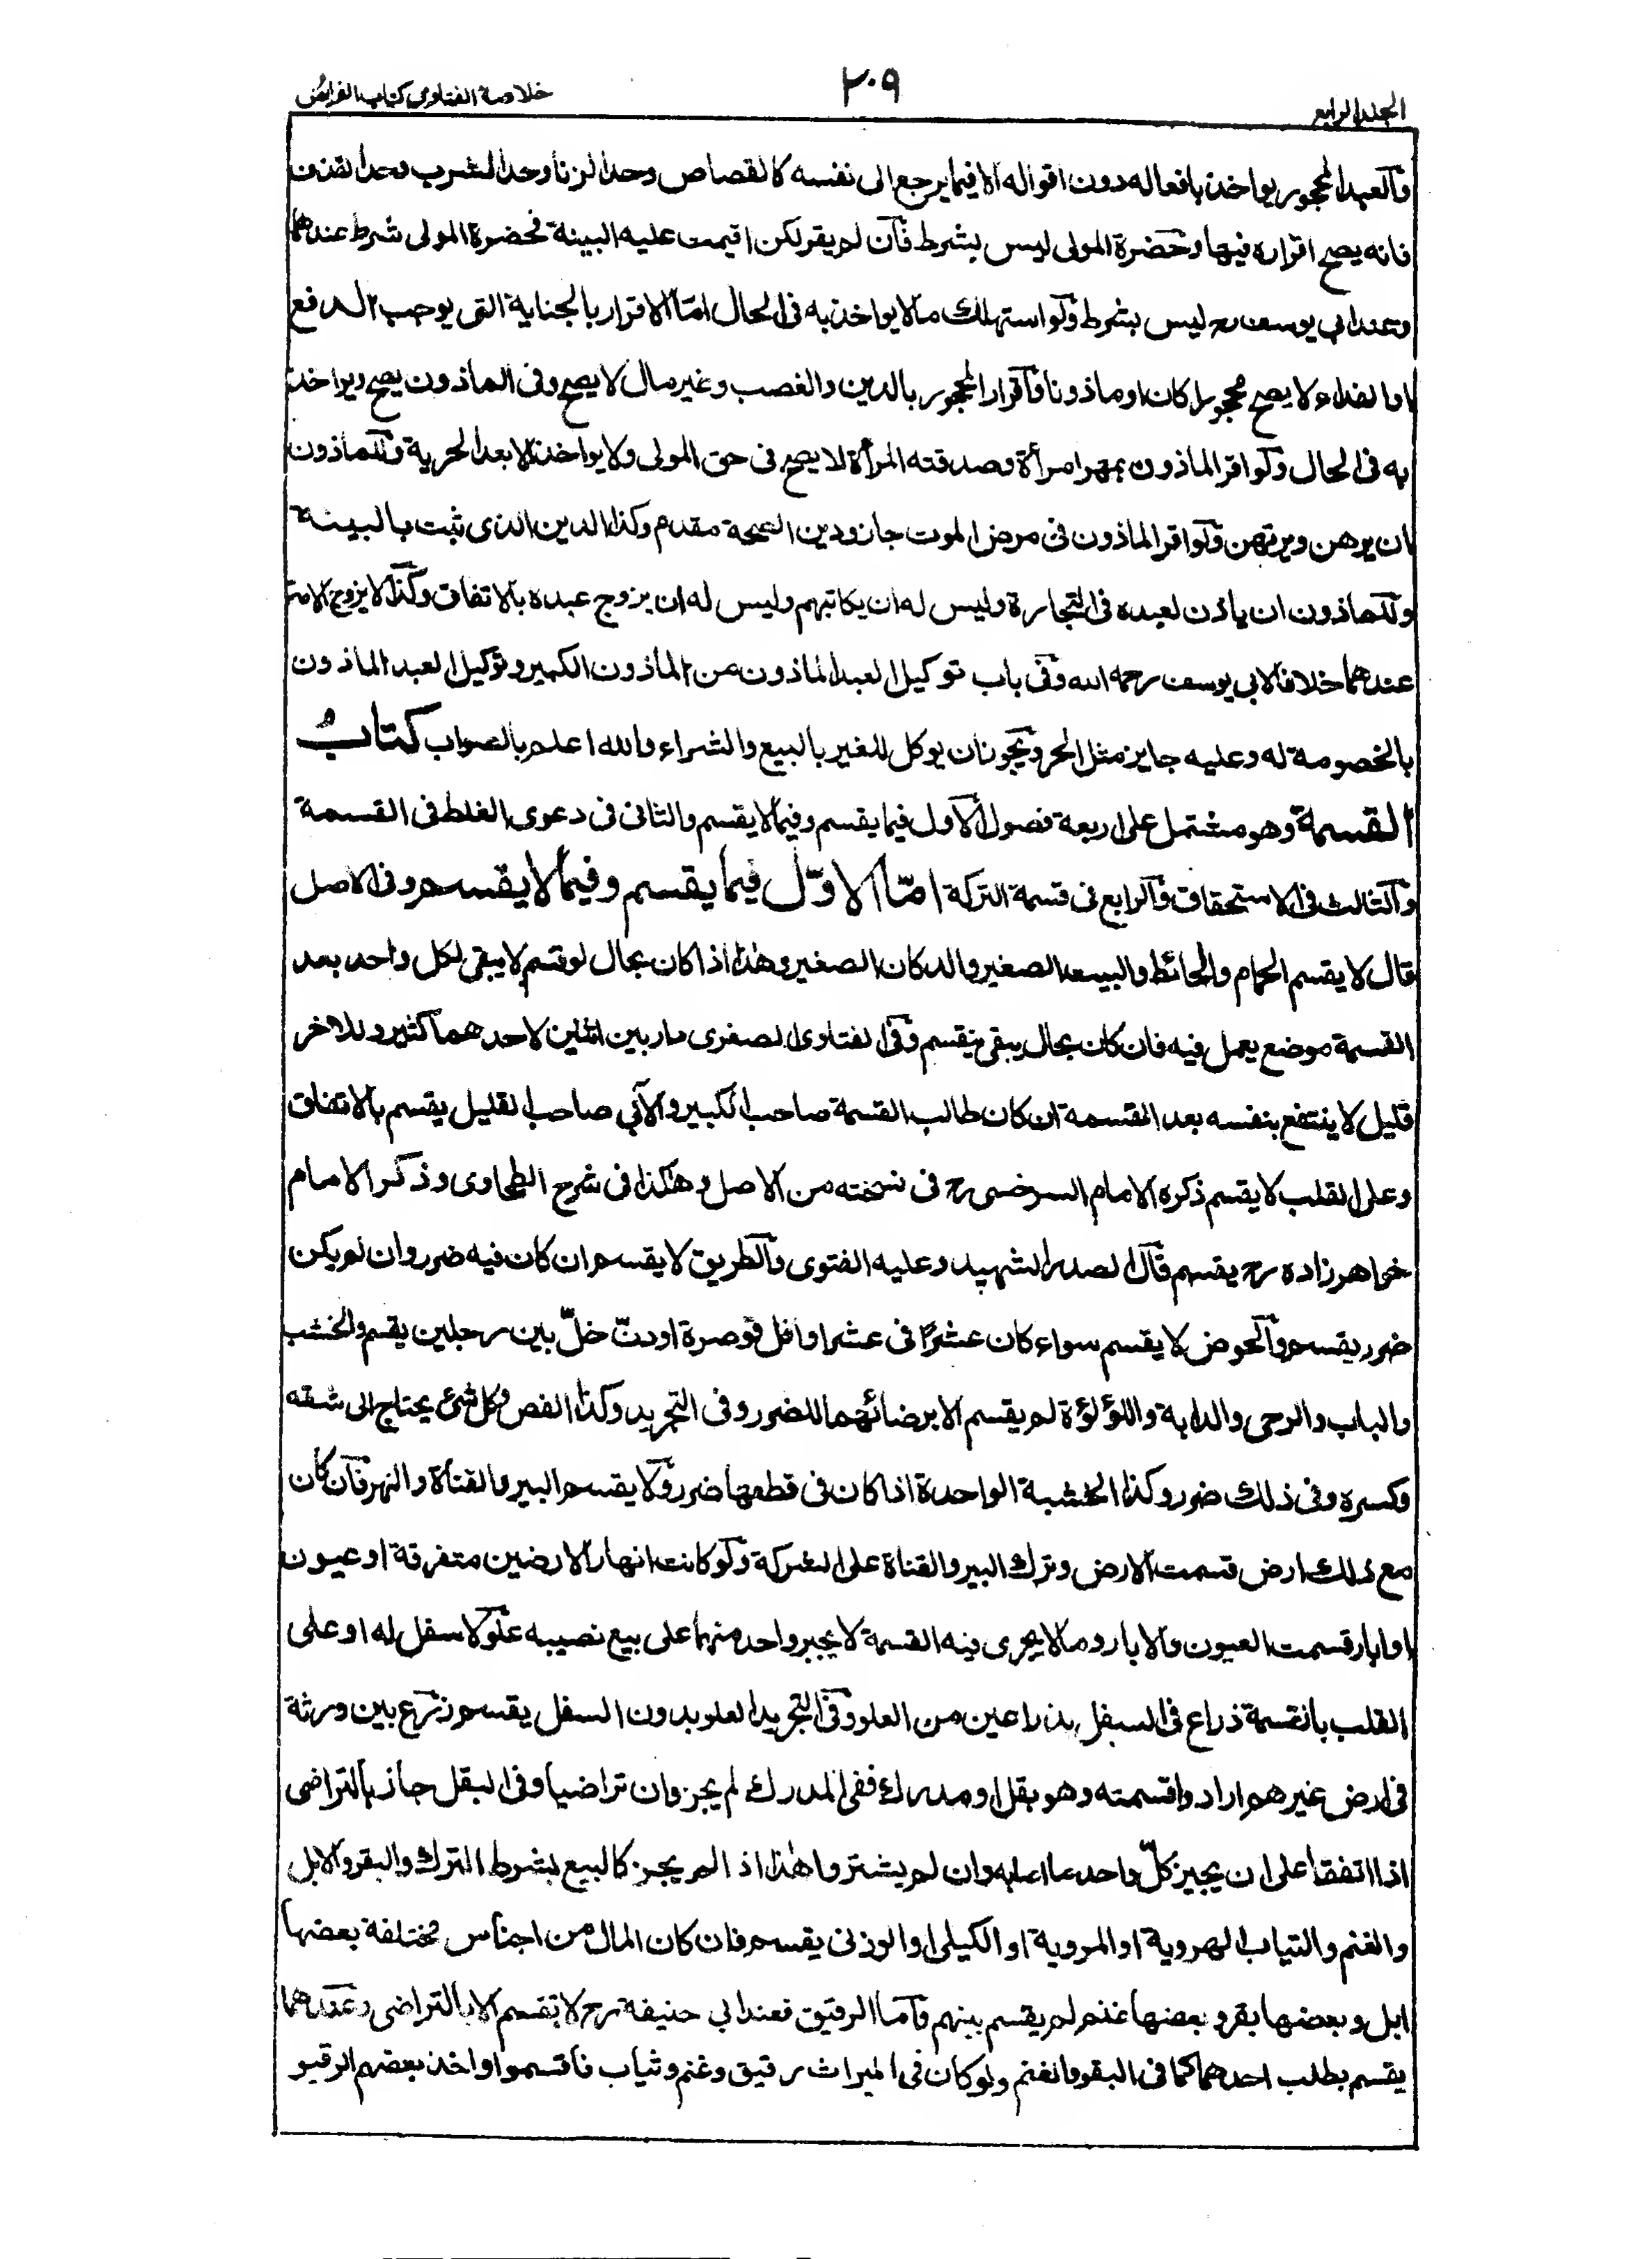 الجلد الرابع
٢٠٩
خلاصة الفتاوى كتاب الفرائض
والعبد المحجور يواخذ بافعاله دون اقواله الا فيما يرجع الى نفسه كالقصاص وحد الزنا وحد الشرب وحد القذف
فانه يصح اقراره فيها وحضرة المولى ليس بشرط فان لم يقر لكن اقيمت عليه البينة فحضرة المولى شرط عندهما
وعند ابى يوسف رح ليس بشرط ولو استهلك مالا يواخذ به فى الحال اما الاقرار بالجناية التى يوجب الدفع
او الفداء لا يصح محجورا كان او ماذونا واقرار المحجور بالدين والغصب وغير مال لا يصح وفى الماذون يصح ويواخذ
به فى الحال ولو اقر الماذون بمهر امرأة وصدقته المرأة لا يصح فى حق المولى ولا يواخذ الا بعد الحرية وللماذون
ان يرهن ويرتهن ولو اقر الماذون فى مرض الموت جاز ودين الصحة مقدم وكذا الدين الذى ثبت بالبينة
وللماذون ان ياذن لعبده فى التجارة وليس له ان يكاتبهم وليس له ان يزوج عبده بالاتفاق وكذا لا يزوج الامة
عندهما خلافا لابى يوسف رحمه الله وفى باب توكيل العبد الماذون من الماذون الكبير وتوكيل العبد الماذون
بالخصومة له وعليه جايز مثل الحر ويجوز ان يوكل للغير بالبيع والشراء والله اعلم بالصواب كتاب
القسمة وهو مشتمل على اربعة فصول الاول فيما يقسم وفيما لا يقسم والثانى فى دعوى الغلط فى القسمة
والثالث فى الاستحقاق والرابع فى قسمة التركة امّا الاوّل فيما يقسم وفيما لا يقسم وفى الاصل
قال لا يقسم الحمام والحائط والبيت الصغير والدكان الصغير وهذا اذا كان بحال لو قسم لا يبقى لكل واحد بعد
القسمة موضع يعمل فيه فان كان بحال يبقى يقسم وفى الفتاوى الصغرى دار بين اثنين لاحدهما كثير وللاخر
قليل لا ينتفع بنفسه بعد القسمة ان كان طالب القسمة صاحب الكبير والآبى صاحب القليل يقسم بالاتفاق
وعلى القلب لا يقسم ذكره الامام السرخسى رح فى نسخته من الاصل وهكذا فى شرح الطحاوى وذكر الامام
خواهرزاده رح يقسم قال الصدر الشهيد وعليه الفتوى والطريق لا يقسم ان كان فيه ضرر وان لم يكن
ضرر يقسم والحوض لا يقسم سواء كان عشرًا فى عشر او اقل قوصرة او دنّ خلّ بين رجلين يقسم والخشب
والباب والرحى والدابة واللؤلؤة لم يقسم الا برضائهما للضرر وفى التجريد وكذا الفص وكل شئ يحتاج الى شقه
وكسره وفى ذلك ضرر وكذا الخشبة الواحدة اذا كان فى قطعها ضرر ولا يقسم البير والقناة والنهر فان كان
مع ذلك ارض قسمت الارض وترك البير والقناة على الشركة ولو كانت انهار الارضين متفرقة او عيون
او ابار قسمت العيون والابار وما لا يجرى فيه القسمة لا يجبر واحد منهما على بيع نصيبه علو لا سفل له او على
القلب بالقسمة ذراع فى السفل بذراعين من العلو وفى التجريد العلو بدون السفل يقسم زرع بين ورثة
فى ارض غيرهم ارادوا قسمته وهو بقل او مدرك ففى المدرك لم يجز وان تراضيا وفى البقل جاز بالتراضى
اذا اتفقا على ان يجيز كلّ واحد ما اصابه وان لم يشترطا هذا اذا لم يجز كالبيع بشرط الترك والبقر والابل
والغنم والثياب الهروية او المروية او الكيلى او الوزنى يقسم فان كان المال من اجناس مختلفة بعضها
ابل وبعضها بقر وبعضها غنم لم يقسم بينهم واما الرقيق فعند ابى حنيفة رح لا تقسم الا بالتراضى وعندهما
يقسم بطلب احدهما كما فى البقر والغنم ولو كان فى الميراث رقيق وغنم وثياب فاقسموا واخذ بعضهم الرقيق